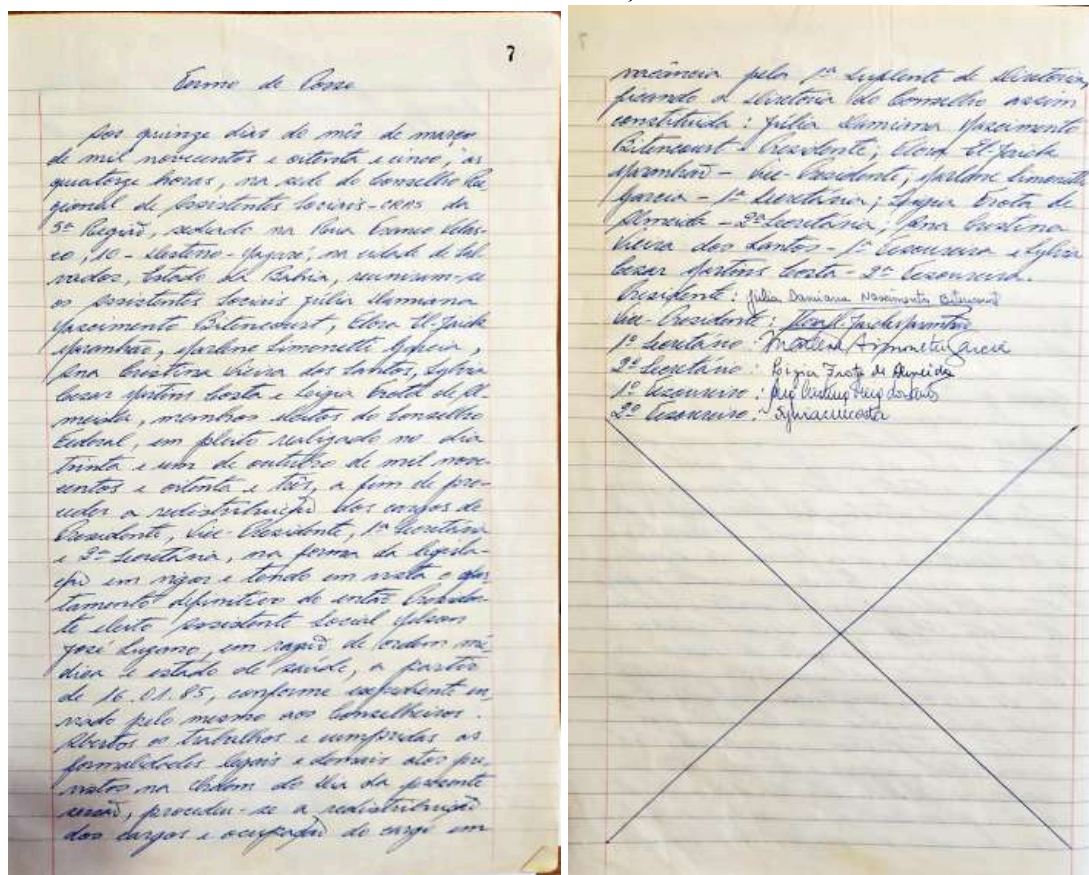 7
Termo de Posse
Aos quinze dias do mês de março
de mil novecentos e oitenta e cinco, às
quatorze horas, na sede do Conselho Re-
gional de Assistentes Sociais - CRAS da
5ª Região, sediado na Rua Franco Velas-
co, 10 - Nazaré, na cidade de Sal-
vador, Estado da Bahia, reuniram-se
os Assistentes Sociais Júlia Damiana
Nascimento Bitencourt, Elora El-Jaick
Maranhão, Marlene Simonetti Garcia,
Ana Cristina Vieira dos Santos, Sylvia
Cezar Martins Costa e Ligia Trota de Al-
meida, membros eleitos do Conselho
Federal, em pleito realizado no dia
trinta e um de outubro de mil nove-
centos e oitenta e três, a fim de pro-
ceder a redistribuição dos cargos de
Presidente, Vice-Presidente, 1ª Secretária
e 2ª Secretária, na forma da legisla-
ção em vigor e tendo em vista o afas-
tamento definitivo do então Presiden-
te eleito Assistente Social
José, em razão de ordem mé-
dica e estado de saúde, a partir
de 16.01.85, conforme expediente en-
viado pelo mesmo aos Conselheiros.
Abertos os trabalhos e cumpridas as
formalidades legais e demais atos pre-
vistos na Ordem do Dia da presente
sessão, procedeu-se a redistribuição
dos cargos e ocupação do cargo em
vacância pela 1ª Suplente de Diretoria,
ficando a Diretoria do Conselho assim
constituída: Júlia Damiana Nascimento
Bitencourt - Presidente; Elora El-Jaick
Maranhão - Vice-Presidente; Marlene Simonetti
Garcia - 1ª Secretária; Ligia Trota de
Almeida - 2ª Secretária; Ana Cristina
Vieira dos Santos - 1ª Tesoureira e Sylvia
Cezar Martins Costa - 2ª Tesoureira.
Presidente: Júlia Damiana Nascimento Bitencourt
Vice-Presidente: Elora El-Jaick Maranhão
1º Secretário: Marlene Simonetti Garcia
2º Secretário: Ligia Trota de Almeida
1º Tesoureiro: Ana Cristina Vieira dos Santos
2º Tesoureiro: Sylviamcosta